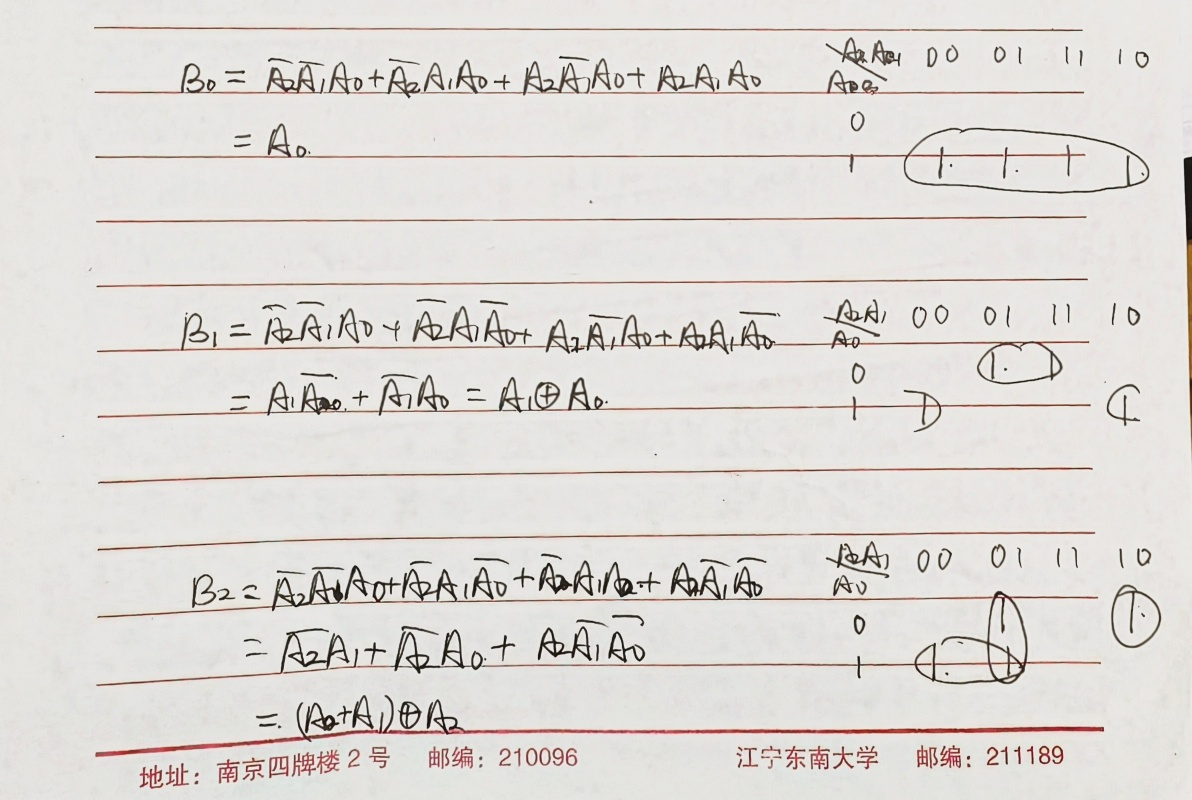 B₀ = A̅₂A̅₁A₀ + A̅₂A₁A₀ + A₂A̅₁A₀ + A₂A₁A₀
= A₀.
00 01 11 10
0
1 1 1 1 1
B₁ = A̅₂A̅₁A₀ + A̅₂A₁A̅₀ + A₂A̅₁A₀ + A₂A₁A̅₀
= A₁A̅₀ + A̅₁A₀ = A₁⊕A₀.
A₂A₁ 00 01 11 10
A₀
0 1 1
1 1 1
B₂ = A̅₂A̅₁A₀ + A̅₂A₁A̅₀ + A̅₂A₁A₀ + A₂A̅₁A̅₀
= A̅₂A₁ + A̅₂A₀ + A₂A̅₁A̅₀
= (A₀+A₁)⊕A₂
A₂A₁ 00 01 11 10
A₀
0 1 1
1 1 1
地址：南京四牌楼2号 邮编：210096 江宁东南大学 邮编：211189